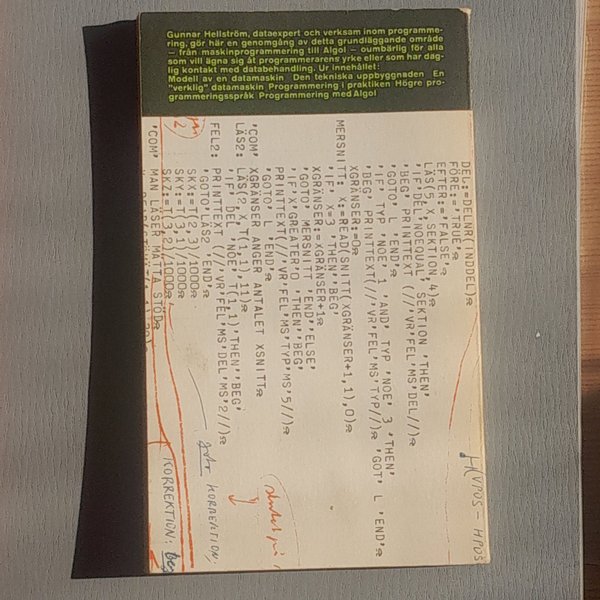 Gunnar Hellström, dataexpert och verksam inom programme-
ring, gör här en genomgång av detta grundläggande område
– från maskinprogrammering till Algol – oumbärlig för alla
som vill ägna sig åt programmerarens yrke eller som har dag-
lig kontakt med databehandling. Ur innehållet:
Modell av en datamaskin Den tekniska uppbyggnaden En
"verklig" datamaskin Programmering i praktiken Högre pro-
grammeringsspråk Programmering med Algol
DEL:=DELNR(INDDEL)
FÖRE:='TRUE'
EFTER:='FALSE'
LÄS(5,X,SEKTION,4)
'IF' DEL 'NOEQUAL' SEKTION 'THEN'
'BEG' PRINTTEXT (//'VR'FEL'MS'DEL//)
'GOTO' L 'END'
'IF' TYP 'NOE' 1 'AND' TYP 'NOE' 3 'THEN'
'BEG' PRINTTEXT(//'VR'FEL'MS'TYP//) 'GOT' L 'END'
XGRÄNSER:=0
MERSNITT: X:=READ(SNITT(XGRÄNSER+1,1),0)
'IF' X=3 'THEN''BEG'
XGRÄNSER:=XGRÄNSER+1
'GOTO' MERSNITT 'END''ELSE'
'IF'X'GREATER'0 'THEN''BEG'
PRINTTEXT(//'VR'FEL'MS'TYP'MS'5//)
'GOTO' L 'END'
'COM' XGRÄNSER ANGER ANTALET XSNITT
LÄS2: LÄS(2,X,T(1,1),11)
'IF' DEL 'NOE' T(1,1)'THEN''BEG'
FEL2: PRINTTEXT (//'VR'FEL'MS'DEL'MS'2//)
'GOTO'LÄS2 'END'
SKX:=T(2,3)/1000
SKY:=T(3,1)/1000
SKZ:=T(3,2)/1000
'COM' MAN LÄSER MÄTTA STÖD
(VPOS – HPOS
KORREKTION,
KORREKTION:
2